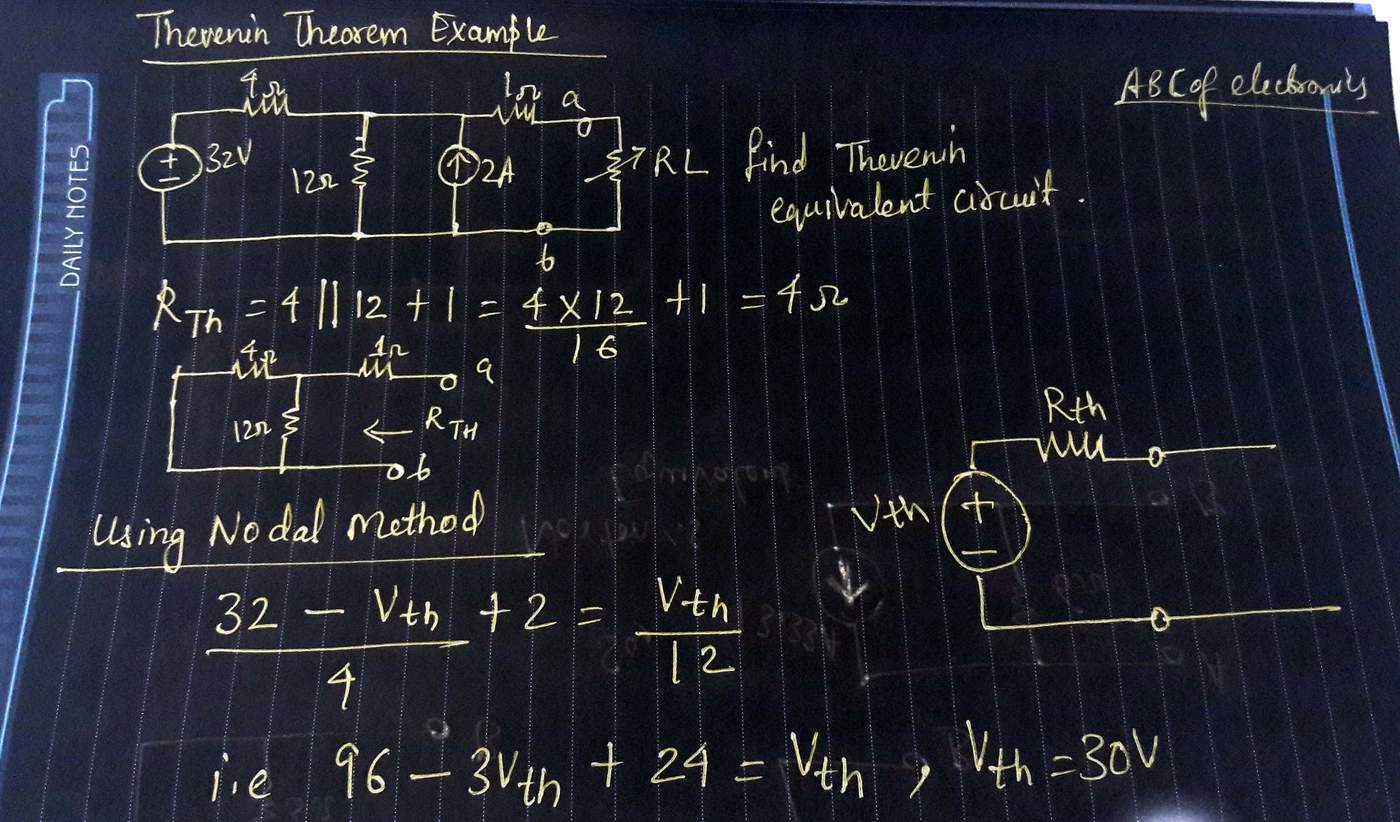 Thevenin Theorem Example
ABC of electronics
DAILY NOTES
4Ω
1Ω
a
32V
12Ω
2A
RL
find Thevenin
equivalent circuit.
b
R_Th = 4 || 12 + 1 = (4 × 12)/16 + 1 = 4Ω
4Ω
1Ω
a
12Ω
← R_TH
b
Rth
Vth
+
−
Using Nodal Method
(32 − V_th)/4 + 2 = V_th/12
i.e 96 − 3V_th + 24 = V_th , V_th = 30V